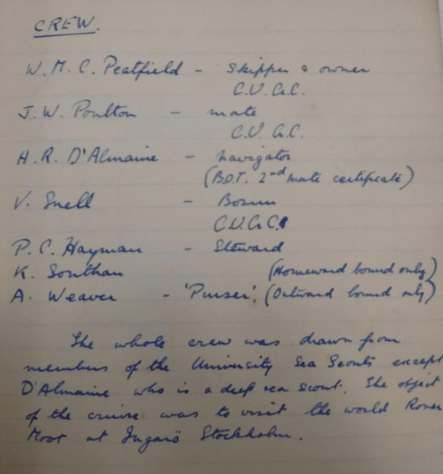 CREW.
W. M. C. Peatfield - skipper & owner
C.U.Cr.C.
J. W. Poulton - mate
C.U.Cr.C.
H. R. D'Almaine - navigator
(B.O.T. 2nd mate certificate)
V. Snell - Bosun
C.U.Cr.C.
P. C. Hayman - Steward
K. (Homeward bound only)
A. Weaver - 'Purser' (Outward bound only)
The whole crew was drawn from
members of the University Sea Scouts except
D'Almaine who is a deep sea scout. The object
of the cruise was to visit the world Rover
Moot at Ingarö Stockholm.